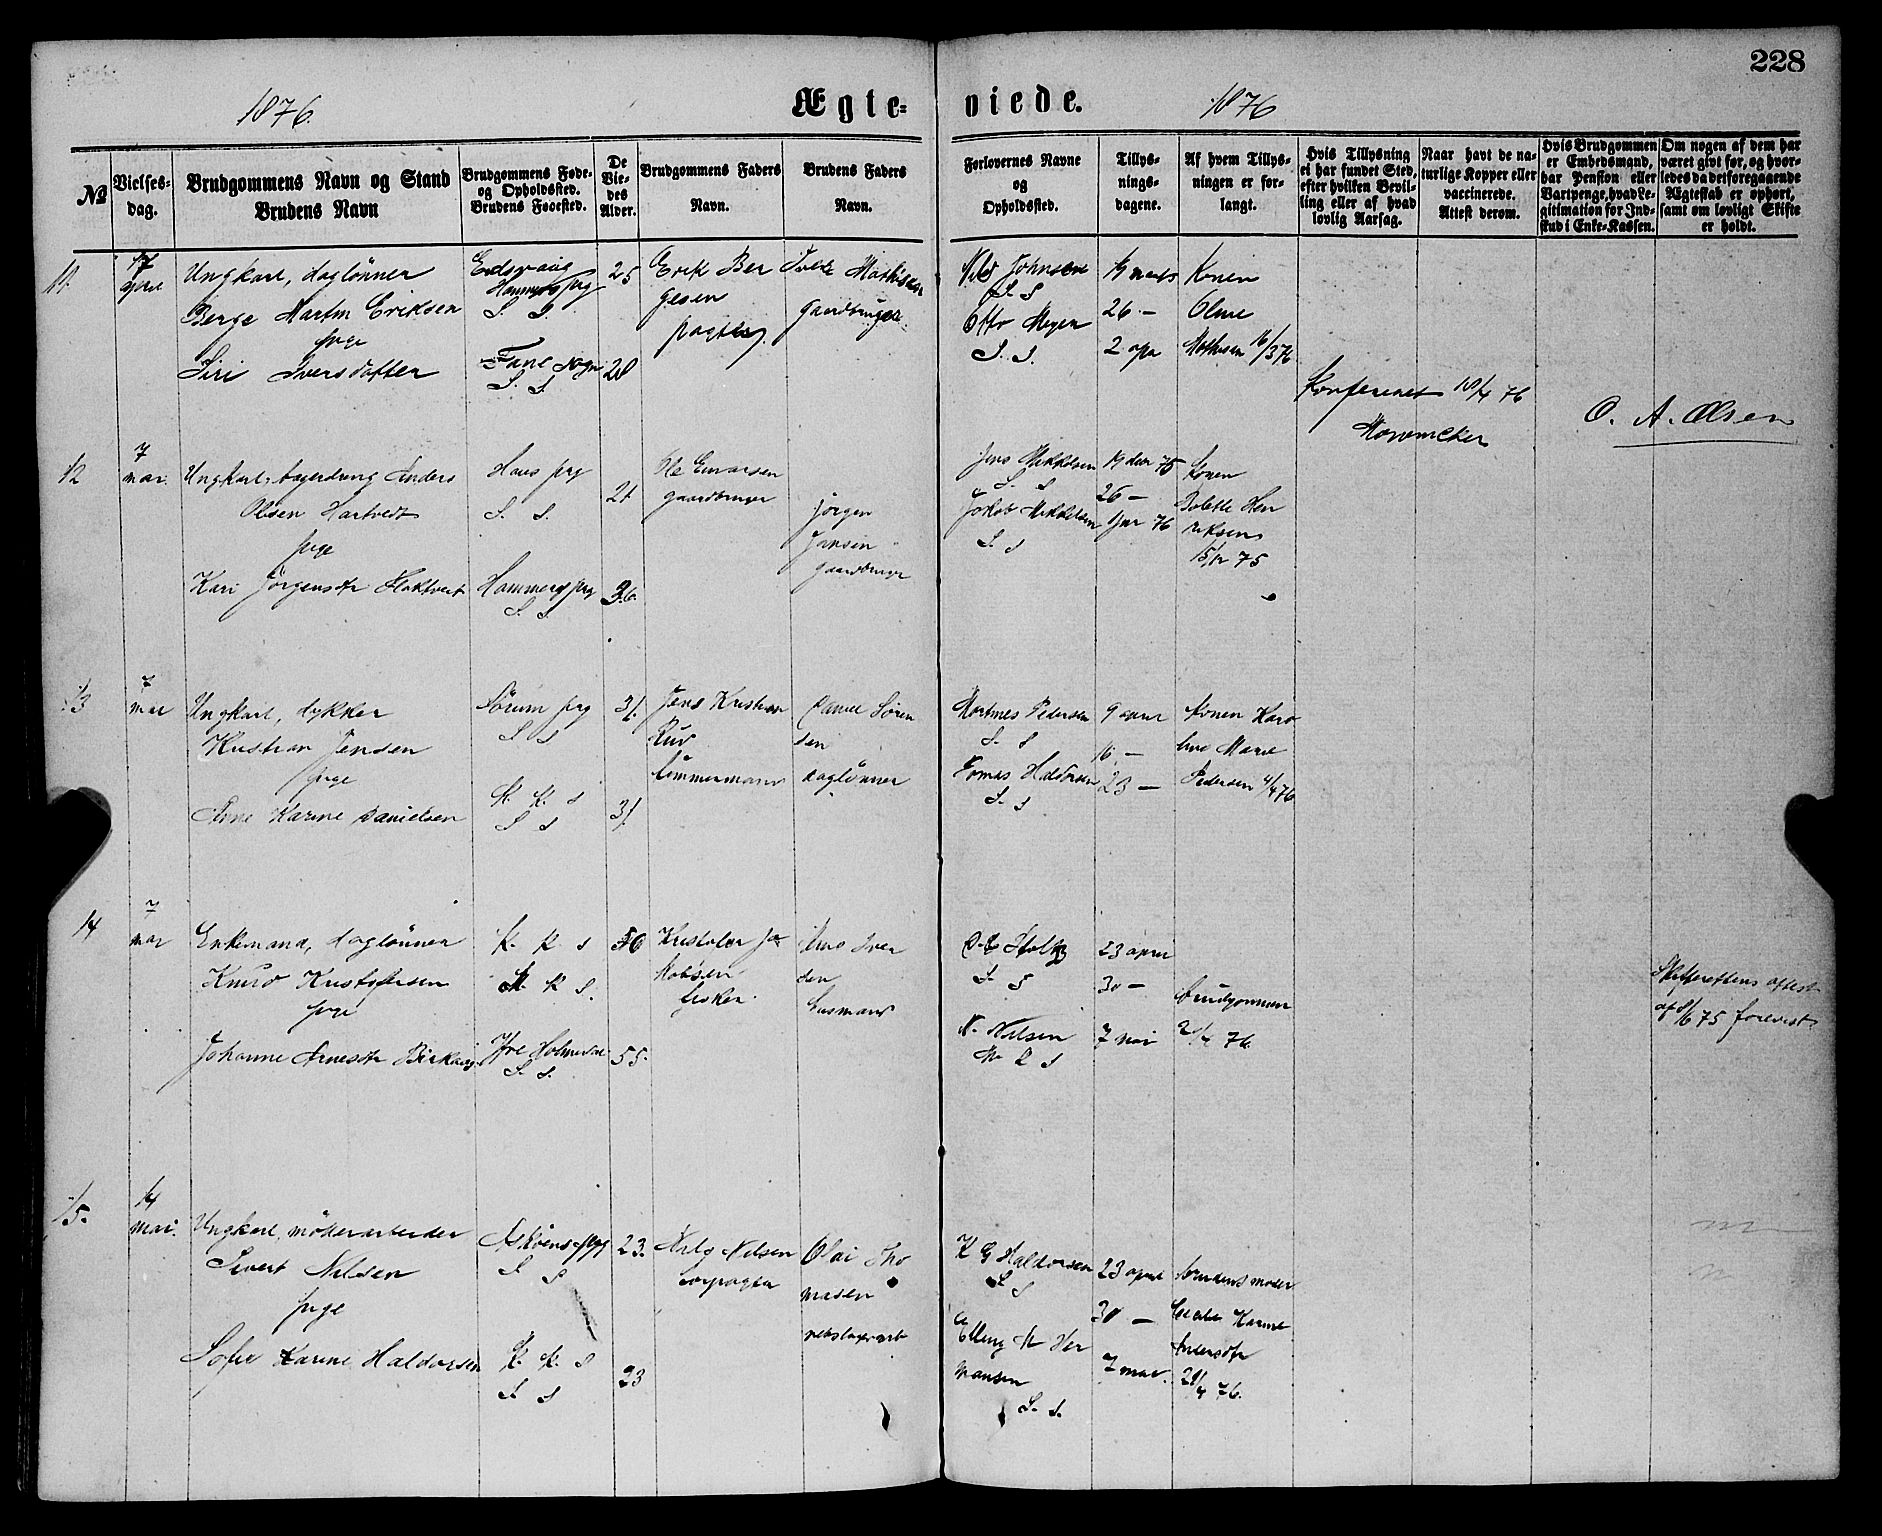 228
1876. Ægteviede. 1876
No
Vielses-
dag.
Brudgommens Navn og Stand
Brudens Navn
Brudgommens Føde-
og Opholdssted.
Brudens Fødested.
De
Vie-
des
Alder.
Brudgommens Faders
Navn.
Brudens Faders
Navn.
Forlovernes Navne
og
Opholdssted.
Tillys-
nings-
dagene.
Af hvem Tillys-
ningen er for-
langt.
Hvis Tillysning
ei har fundet Sted,
efter hvilken Bevil-
ling eller af hvad
lovlig Aarsag.
Naar havt de na-
turlige Kopper eller
vaccinerede.
Attest derom.
Hvis Brudgommen
er Embedsmand,
har Pension eller
Vartpenge, hvad Le-
gitimation for Ind-
skud i Enke-Kassen.
Om nogen af dem har
været givt før, og hvor-
ledes da det foregaaende
Ægteskab er ophørt,
samt om lovligt Skifte
er holdt.
11.
17
april
Ungkarl, daglønner
Berge Martin Eriksen
pige
Siri Iversdatter
Hammers prg
S. S.
Fane sogn
S. S.
25
28
Erik Ber
gesen
Mathisen
gaardbruger
Nils Johnsen
S. S
Otto Meyer
S. S.
19 marts
26 —
2 apr
Konen
Oline
Mathisen 16/3 76
Konfereret 18/4 76
O. A. Olsen
12
7
mai.
Ungkarl, Anders
Olsen Hartvedt
pige
Kari Jørgensdtr
Haus prg
S. S.
Hammers prg
S. S.
21
36.
Ole
gaardbruger
Jørgen
Jansen
gaardbruger
Jens Mikkelsen
S. S
Jakob Mikkelsen
S. S
19 dcbr 75
26 —
1 jar 76
Konen
Bolette Hen
riksen
15/12 75
13
7
mai
Ungkarl, dykker
Kristian Jensen
pige
Ane Karine Danielsen
Sørum prg
S S
K. K. S
S S
31.
31.
Jens Kristian
tømmermand
Daniel Søren
sen
daglønner
Martines Pedersen
S. S
Tomas Haldorsen
S. S
9 april
16 —
23 —
Konen Karo
line Marie
Pedersen 4/4 76
14
7
mai
Enkemand, daglønner
Knud Kristofersen
pige
Johanne Arnesdtr Birkaug
K. K S
K K S.
Ytre Holmedal
S. S.
56
55.
Kristofer Ja
kobsen
fisker.
Arne Iver
sen
husmand
S. S
N. Nilsen
23 april
30 —
7 mai
brudgommen
21/4 76.
Skifterettens attest
forevist
15.
14
mai.
Ungkarl, møllerarbeider
Sivert Nilsen
pige
Sofie Karine Haldorsen
Askøens prg
S S
K. K. S
S. S
23.
23
Nils Nilsen
Olai Tho
masen
K G Haldorsen
S S
Elling M Her
mansen
S. S.
23 april
30 —
7 mai.
brudens moder
Karine
21/4 76.